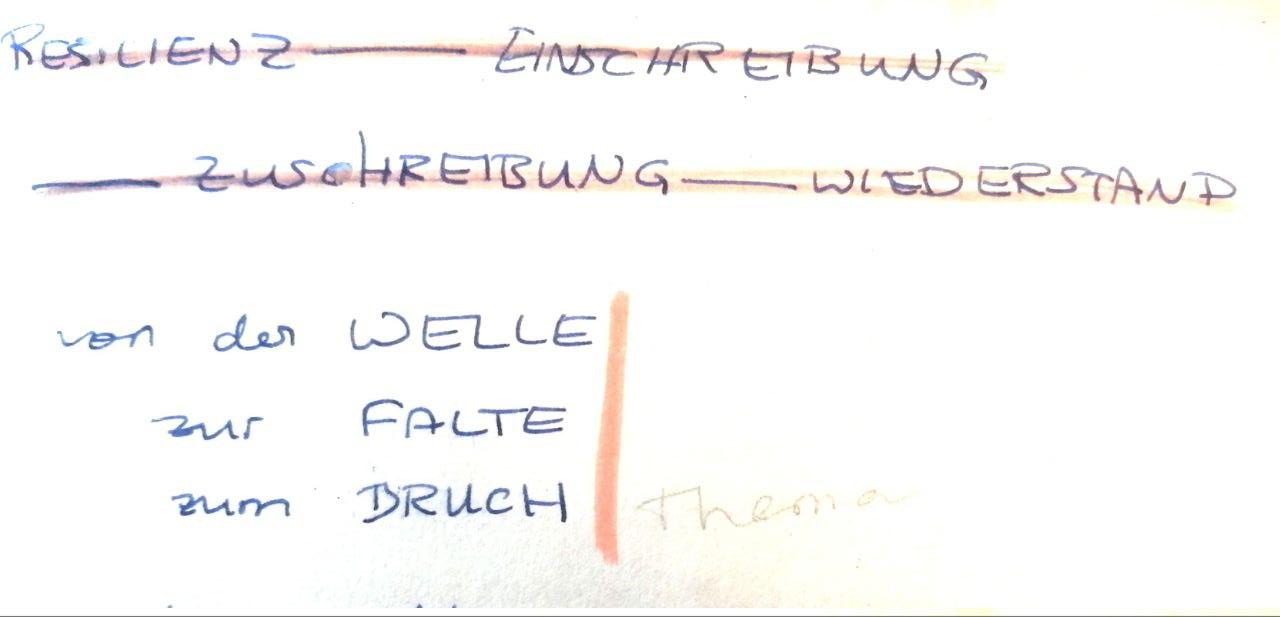 RESILIENZ — EINSCHREIBUNG
— ZUSCHREIBUNG — WIEDERSTAND
von der WELLE
zur FALTE
zum BRUCH Thema